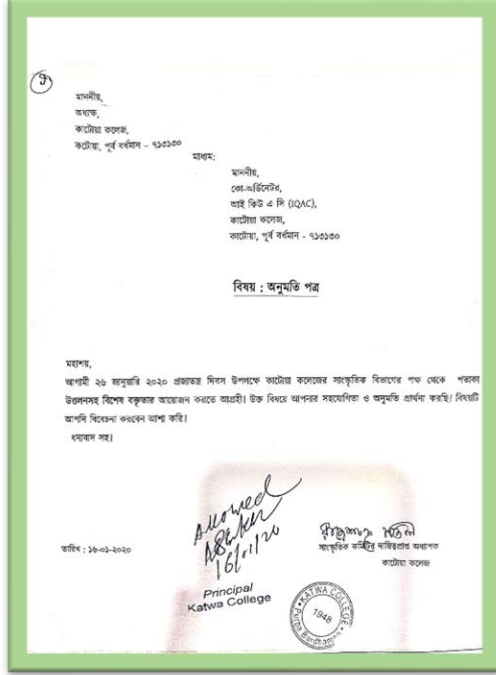 ৩
মাননীয়,
অধ্যক্ষ,
কাটোয়া কলেজ,
কাটোয়া, পূর্ব বর্ধমান - ৭১৩১৩০
মাধ্যম:
মাননীয়,
কো-অর্ডিনেটর,
আই কিউ এ সি (IQAC),
কাটোয়া কলেজ,
কাটোয়া, পূর্ব বর্ধমান - ৭১৩১৩০
বিষয় : অনুমতি পত্র
মহাশয়,
আগামী ২৬ জানুয়ারি ২০২০ প্রজাতন্ত্র দিবস উপলক্ষে কাটোয়া কলেজের সাংস্কৃতিক বিভাগের পক্ষ থেকে পতাকা
উত্তলনসহ বিশেষ বক্তৃতার আয়োজন করতে আগ্রহী। উক্ত বিষয়ে আপনার সহযোগিতা ও অনুমতি প্রার্থনা করছি। বিষয়টি
আপনি বিবেচনা করবেন আশা করি।
ধন্যবাদ সহ।
Allowed
16/01/20
Principal
Katwa College
তারিখ : ১৬-০১-২০২০
সাংস্কৃতিক কমিটির দায়িত্বপ্রাপ্ত অধ্যাপক
কাটোয়া কলেজ
KATWA COLLEGE
1948
Purba Bardhaman